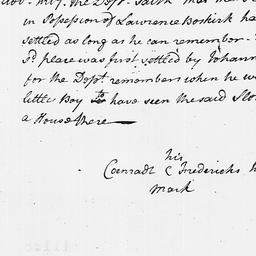 in Possession of Lawrence Boskirk ha
settled as long as he can remember -
sd. place was first settled by Johann
for the Dept. remembers when he w
little Boy to have seen the said
a House there
his
Coenradt C Fredericks
mark